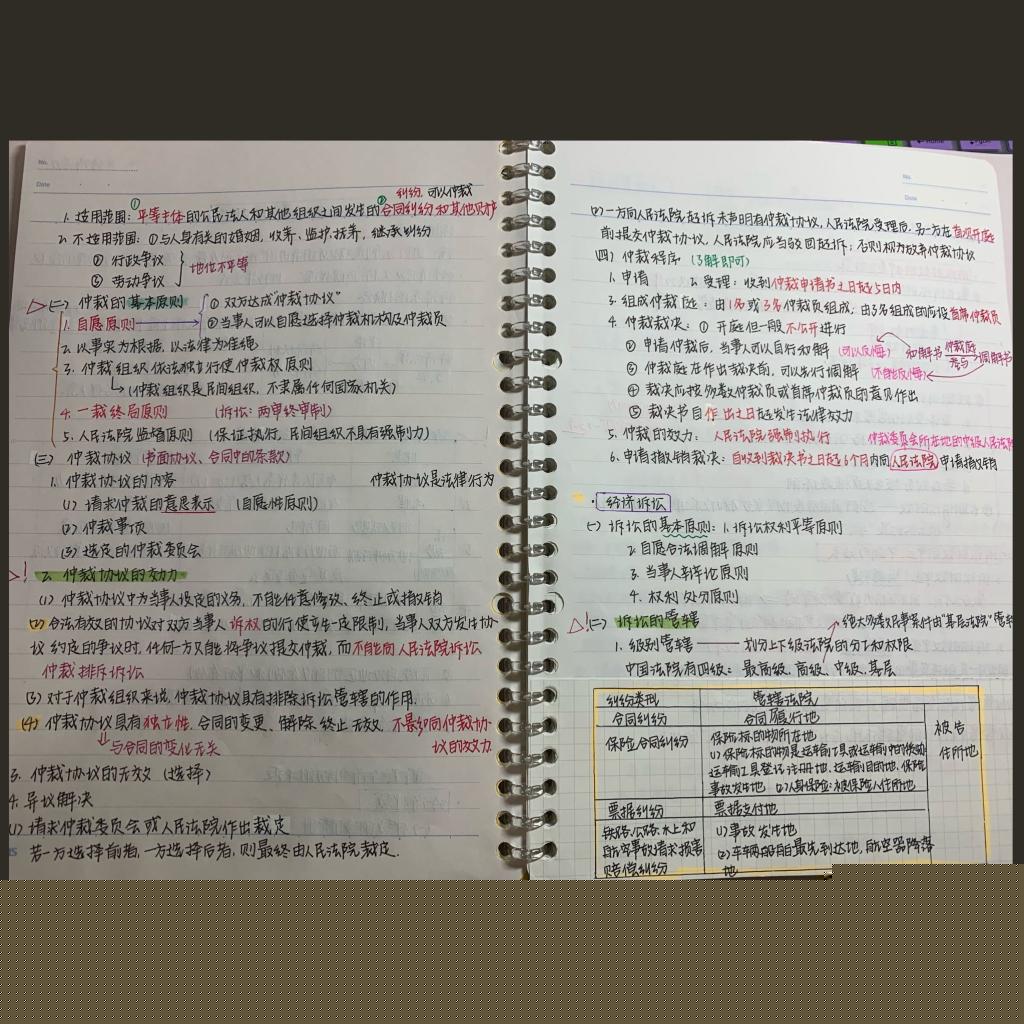 No.
Date
纠纷,可以仲裁
1. 适用范围:①平等主体的公民法人和其他组织之间发生的②合同纠纷和其他财产
2. 不适用范围:①与人身有关的婚姻,收养、监护、抚养,继承纠纷
② 行政争议
③ 劳动争议 } 地位不平等
(二) 仲裁的基本原则
① 双方达成“仲裁协议”
1. 自愿原则
②当事人可以自愿选择仲裁机构及仲裁员
2. 以事实为根据,以法律为准绳
3. 仲裁组织依法独立行使仲裁权原则
(仲裁组织是民间组织,不隶属任何国家机关)
4. 一裁终局原则 (诉讼:两审终审制)
5. 人民法院监督原则 (保证执行,民间组织不具有强制力)
(三) 仲裁协议 (书面协议、合同中的条款)
1. 仲裁协议的内容 仲裁协议是法律行为
(1) 请求仲裁的意思表示 (自愿性原则)
(2) 仲裁事项
(3) 选定的仲裁委员会
! 2. 仲裁协议的效力
(1) 仲裁协议中为当事人设定的义务,不能任意修改、终止或撤销
(2) 合法有效的协议对双方当事人诉权的行使产生一定限制,当事人双方发生协
议约定的争议时,任何一方只能将争议提交仲裁,而不能向人民法院诉讼
仲裁排斥诉讼
(3) 对于仲裁组织来说,仲裁协议具有排除诉讼管辖的作用.
(4) 仲裁协议具有独立性,合同的变更、解除、终止无效,不影响仲裁协
与合同的变化无关 议的效力
3. 仲裁协议的无效 (选择)
4. 异议解决
(1) 请求仲裁委员会或人民法院作出裁定
若一方选择前者,一方选择后者,则最终由人民法院裁定.
No.
Date
(2) 一方向人民法院起诉未声明有仲裁协议,人民法院受理后,另一方在首次开庭
前提交仲裁协议,人民法院应当驳回起诉;否则视为放弃仲裁协议
四) 仲裁程序 (了解即可)
1. 申请 2. 受理:收到仲裁申请书之日起5日内
3. 组成仲裁庭:由1名或3名仲裁员组成;由3名组成的应设首席仲裁员
4. 仲裁裁决:① 开庭但一般不公开进行
② 申请仲裁后,当事人可以自行和解 (可以反悔) 和解书 仲裁庭参与 调解书
③ 仲裁庭在作出裁决前,可以先行调解 (不能反悔)
④ 裁决应按多数仲裁员或首席仲裁员的意见作出
⑤ 裁决书自作出之日起发生法律效力
5. 仲裁的效力:人民法院强制执行 仲裁委员会所在地的中级人民法院
6. 申请撤销裁决:自收到裁决书之日起6个月内向人民法院申请撤销
经济诉讼
(一) 诉讼的基本原则:1. 诉讼权利平等原则
2. 自愿合法调解原则
3. 当事人辩论原则
4. 权利处分原则
! (二) 诉讼的管辖 绝大多数民事案件由“基层法院”管辖
1. 级别管辖 —— 划分上下级法院的分工和权限
中国法院有四级:最高级、高级、中级、基层
纠纷类型 管辖法院
合同纠纷 合同履行地 被告住所地
保险合同纠纷 保险标的物所在地
(1) 保险标的物是运输工具或运输中的货物
运输工具登记注册地、运输目的地、保险
事故发生地 (2) 人身保险:被保险人住所地
票据纠纷 票据支付地
铁路、公路、水上和 (1) 事故发生地
航空事故请求损害 (2) 车辆船舶最先到达地,航空器降落
赔偿纠纷 地